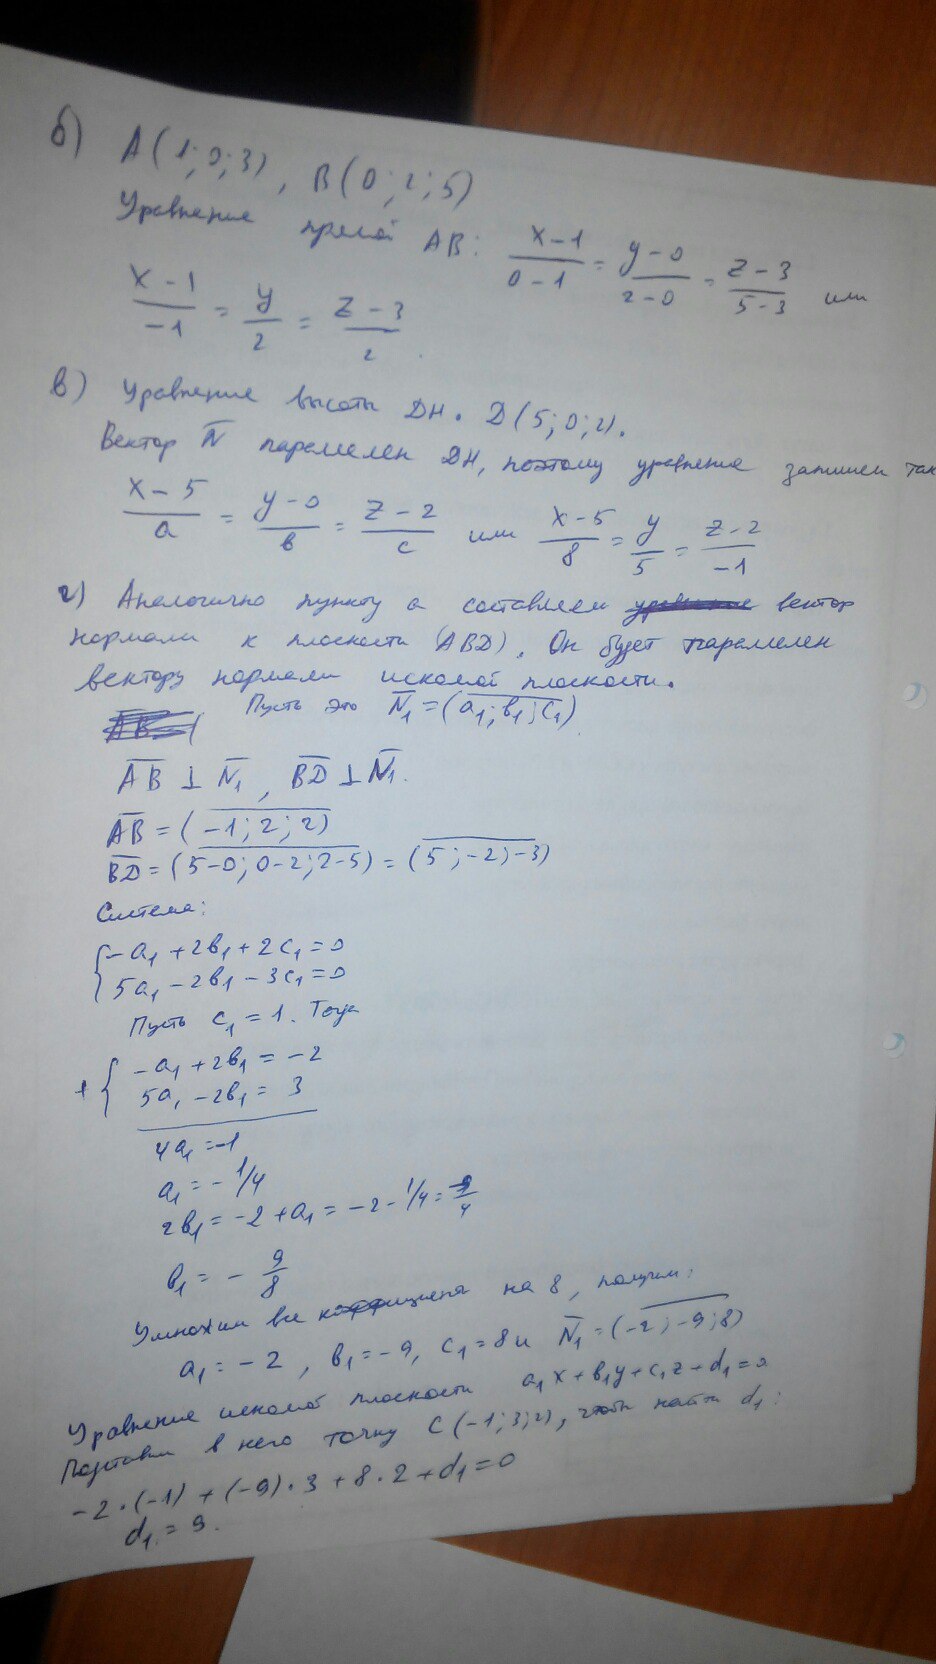 б) A(1;0;3), B(0;2;5)
Уравнение прямой AB: (x-1)/(0-1) = (y-0)/(2-0) = (z-3)/(5-3) или
(x-1)/(-1) = y/2 = (z-3)/2.
в) Уравнение высоты DH. D(5;0;2).
Вектор N̅ параллелен DH, поэтому уравнение запишем так
(x-5)/a = (y-0)/b = (z-2)/c или (x-5)/8 = y/5 = (z-2)/(-1)
г) Аналогично пункту а составляем вектор
нормали к плоскости (ABD). Он будет параллелен
вектору нормали искомой плоскости.
Пусть это N̅₁ = (a₁; b₁; c₁)
A̅B̅ ⊥ N̅₁, B̅D̅ ⊥ N̅₁.
A̅B̅ = (-1; 2; 2)
B̅D̅ = (5-0; 0-2; 2-5) = (5; -2; -3)
Система:
{ -a₁ + 2b₁ + 2c₁ = 0
5a₁ - 2b₁ - 3c₁ = 0
Пусть c₁ = 1. Тогда
+ { -a₁ + 2b₁ = -2
5a₁ - 2b₁ = 3
4a₁ = 1
a₁ = -1/4
2b₁ = -2 + a₁ = -2 - 1/4 = -9/4
b₁ = - 9/8
Умножим все коэффициенты на 8, получим:
a₁ = -2, b₁ = -9, c₁ = 8 и N̅₁ = (-2; -9; 8)
Уравнение искомой плоскости a₁x + b₁y + c₁z + d₁ = 0
Подставим в него точку C(-1; 3; 2), чтобы найти d₁:
-2·(-1) + (-9)·3 + 8·2 + d₁ = 0
d₁ = 9.